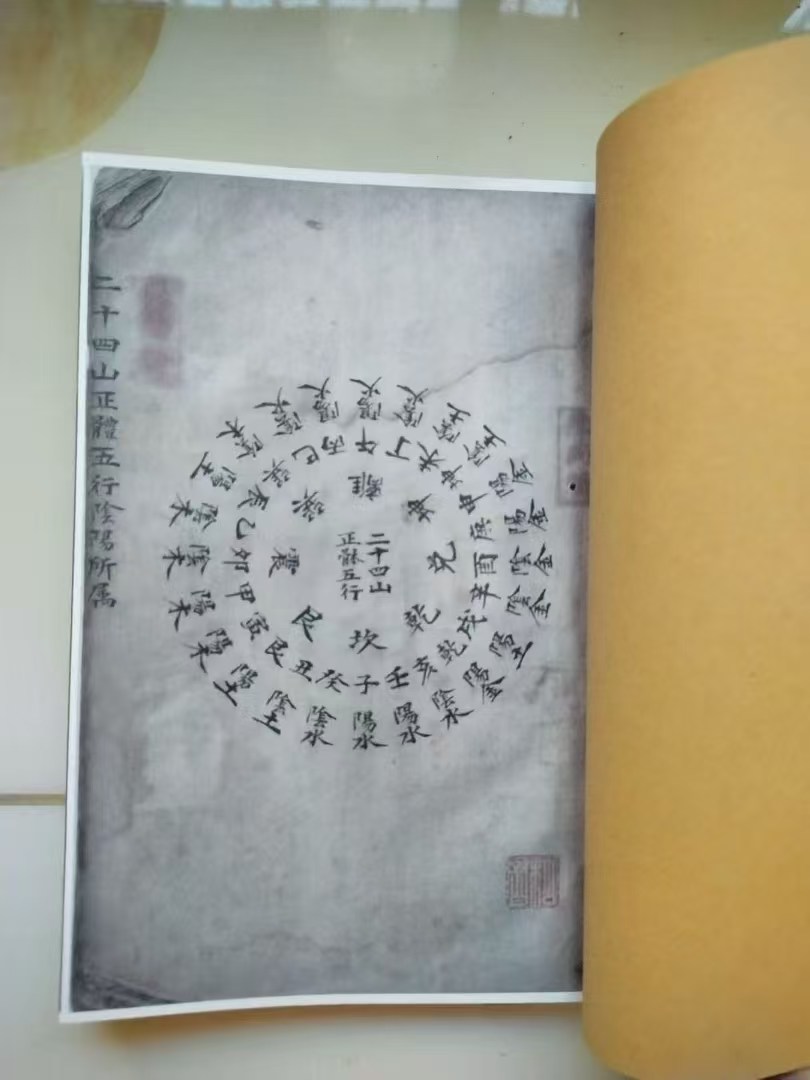 二十四山正體五行陰陽所属
二十四山
正骵五行
離
坤
兌
乾
坎
艮
震
巽
午
丁
未
坤
申
庚
酉
辛
戌
乾
亥
壬
子
癸
丑
艮
寅
甲
卯
乙
辰
巽
巳
丙
陽火
陰火
陰土
陰土
陽金
陽金
陰金
陰金
陽土
陽金
陰水
陽水
陽水
陰水
陰土
陽土
陽木
陽木
陰木
陰木
陽土
陰木
陰火
陽火